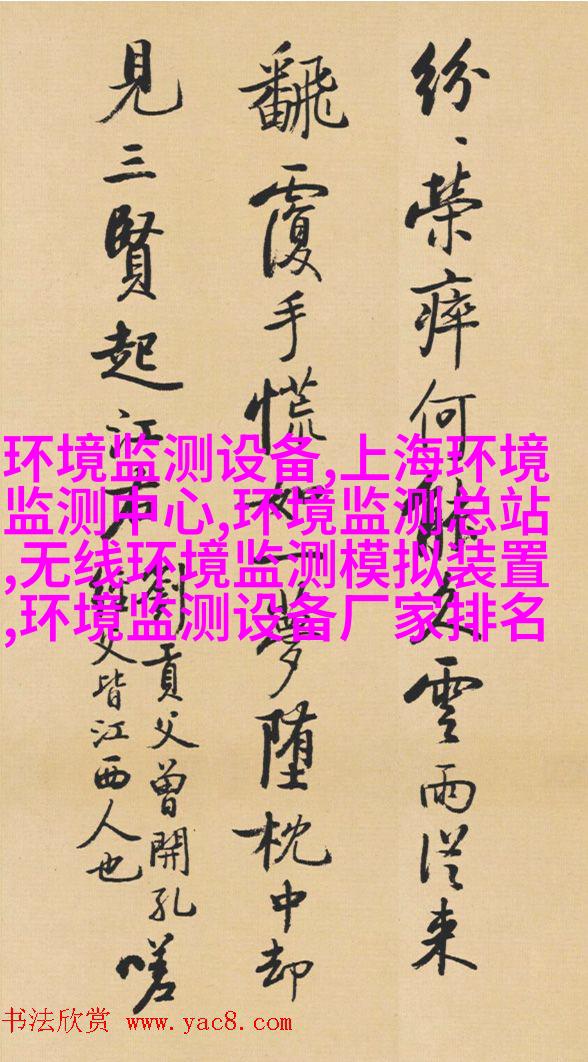 紛、榮瘁何能久雲雨從来
飜覆手慌如一夢墮枕中却
見三賢起江右
劉貢父曾開孔
經父皆江西人也
嗟
环境监测设备,上海环境
监测中心,环境监测总站
,无线环境监测模拟装置
,环境监测设备厂家排名
书法欣赏 www.yac8.com